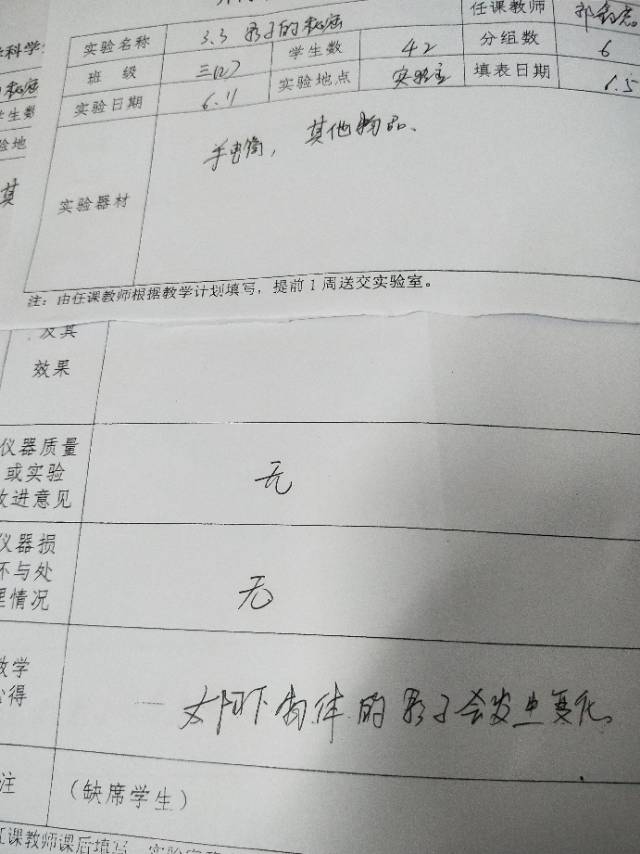 任课教师
实验名称 3.3 影子的秘密 学生数 42 分组数 6
班 级 三(2) 实验地点 实验室 填表日期 6.5
实验日期 6.11
实验器材 手电筒，其他物品、
注：由任课教师根据教学计划填写，提前1周送交实验室。
学科学
秘密
学生数
验地
其
及其
效果
仪器质量
或实验
改进意见
无
仪器损
坏与处
理情况
无
教学
心得
太阳下物体的影子会发生变化。
注
（缺席学生）
任课教师课后填写